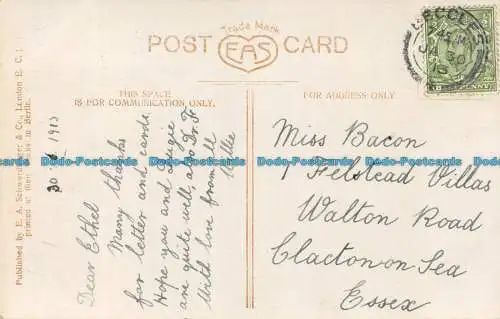 Trade Mark
POST CARD
EAS
THIS SPACE
IS FOR COMMUNICATION ONLY.
FOR ADDRESS ONLY.
BECCLES
30
Published by E. A. Schwerdtfeger & Co., London E. C.
printed at their works in Berlin.
30 1913
Dear Ethel
Many thanks
for letter and cards.
Hope you and
are quite well, also Dr. F
With love from all
Willie
Miss Bacon
1 Felstead Villas
Walton Road
Clacton-on-Sea
Essex
Dodo-Postcards Dodo-Postcards Dodo-Postcards Dodo-Postcards